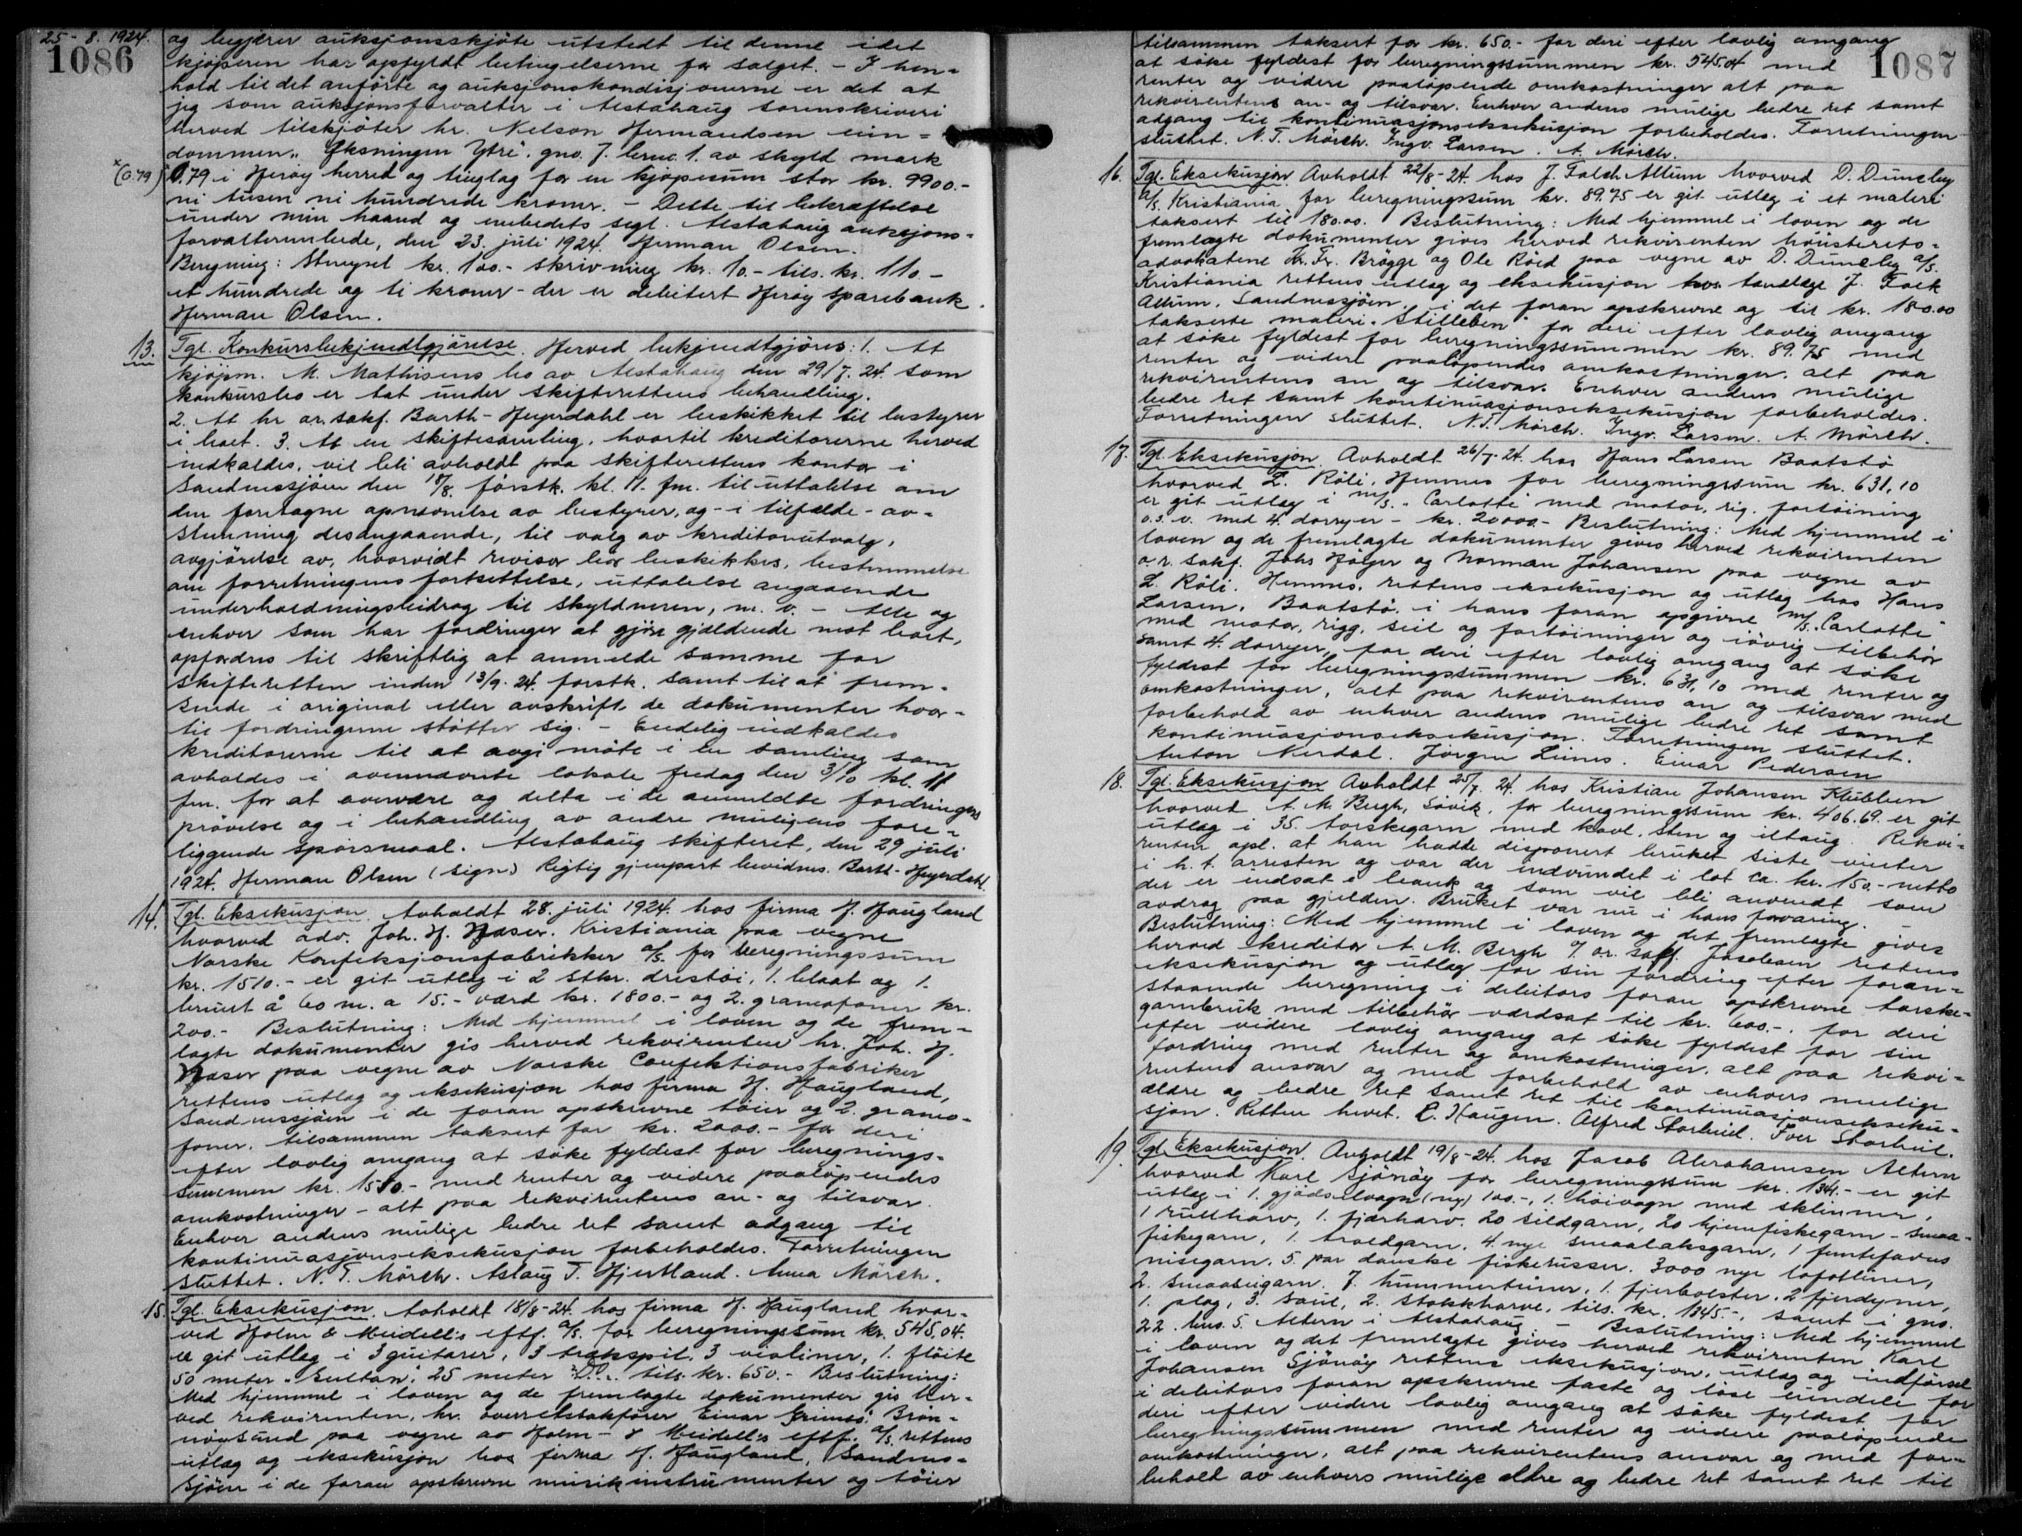 25-8.1924.
1086
og begjærer auksjonsskjöte utstedt til denne idet
kjöperen har opfyldt betingelserne for salget. - I hen-
hold til det anförte og auksjonskondisjonerne er det at
jeg som auksjonsforvalter i Alstahaug sorenskriveri
herved tilskjöter hr. Nelson Hermandsen eien-
dommen „Öksningen Ytre". gno. 7. bruc 1. av skyld mark
x (0.79) 0,79 i Heröy herred og tinglag for en kjöpesum stor kr. 9900.-
ni tusen ni hundrede kroner. - Dette til bekræftelse
under min haand og embedets segl. Alstahaug auksjons-
forvalterembede, den 23. juli 1924. Herman Olsen.
Beregning: Stempel kr. 100.- skrivning kr. 10.- tils. kr. 110.-
et hundrede og ti kroner - der er debitert Heröy Sparebank.
Herman Olsen.
13. Tgl. Konkursbekjendtgjörelse. Herved bekjendtgjöres: 1. At
kjöpm. M. Mathisens bo av Alstahaug den 29/7. 24 som
konkursbo er tat under skifterettens behandling.
2. At hr or. sakf. Barth-Heyerdahl er beskikket til bestyrer
i boet. 3. At en skiftesamling, hvortil kreditorerne herved
indkaldes, vil bli avholdt paa skifterettens kontor i
Sandnessjöen den 18/8. förstk. kl. 11. fm. til uttalelse om
den foretagne opnevnelse av bestyrer, og - i tilfælde - av-
stemning desangaaende, til valg av kreditorutvalg,
avgjörelse av, hvorvidt revisor bör beskikkes, bestemmelse
om forretningens fortsettelse, uttalelse angaaende
underholdningsbidrag til skyldneren, m. v. - Alle og
enhver som har fordringer at gjöre gjældende mot boet,
opfordres til skriftlig at anmelde samme for
skifteretten inden 13/9. 24. förstk. samt til at frem-
sende i original eller avskrift de dokumenter hvor-
til fordringerne stötter sig. - Endelig indkaldes
kreditorerne til at avgi möte i en samling som
avholdes i ovennævnte lokale fredag den 3/10 kl. 11
fm. for at overvære og delta i de anmeldte fordringers
prövelse og i behandling av andre muligens fore-
liggende spörsmaal. Alstahaug skifteret, den 29 juli
1924. Herman Olsen (sign) Rigtig gjenpart bevidnes. Barth-Heyerdahl.
14. Tgl. Eksekusjon. Avholdt 28. juli 1924. hos firma H. Haugland
hvorved adv. Joh. H. Næser. Kristiania paa vegne
Norske Konfeksjonsfabrikker a/s. for beregningssum
kr. 1510.- er git utlæg i 2 stkr. drestöi, 1. blaat og 1.
brunt å 60 m. a 15.- værd kr. 1800.- og 2. gramofoner kr.
200.- Beslutning: Med hjemmel i loven og de frem-
lagte dokumenter gis herved rekvirenten hr. Joh. H.
Næser paa vegne av Norske Confektionsfabriker
rettens utlæg og eksekusjon hos firma H. Haugland,
Sandnessjöen i de foran opskrevne töier og 2. gramo-
foner. tilsammen taksert for kr. 2000.- for deri
efter lovlig omgang at söke fyldest for beregnings-
summen kr. 1510.- med renter og videre paalöpendes
omkostninger - alt paa rekvirentens an- og tilsvar.
Enhver andens mulige bedre ret samt adgang til
kontinuasjonseksekusjon forbeholdes. Forretningen
sluttet. N. T. Mörch. Aslaug T. Hjertland. Anna Mörch.
15. Tgl. Eksekusjon. Avholdt 18/8-24. hos firma H. Haugland hvor-
ved Holm & Meidell's eftf. a/s. for beregningssum kr. 545,04.
er git utlæg i 3 guitarer, 3 trækspil. 3 violiner, 1. flöite
50 meter „Eultan". 25 meter Do. tils. kr. 650.- Beslutning:
Med hjemmel i loven og de fremlagte dokumenter gis her-
ved rekvirenten, hr. overretssakförer Einar Grimsö. Brön-
nöysund paa vegne av Holm - & Meidell's eftf. a/s. rettens
utlæg og eksekusjon hos firma H. Haugland, Sandnes-
sjöen i de foran opskrevne musikinstrumenter og töier
1087
tilsammen taksert for kr. 650.- for deri efter lovlig omgang
at söke fyldest for beregningssummen kr. 545.04 med
renter og videre paalöpende omkostninger alt paa
rekvirentens an- og tilsvar. Enhver andens mulige bedre ret samt
adgang til kontinuasjonseksekusjon forbeholdes. Forretningen
sluttet. N. T. Mörch. Ingv. Larsen. A. Mörch.
16. Tgl. Eksekusjon. Avholdt 22/8-24. hos J. Falch Altum hvorved D. Duncley
a/s. Kristiania for beregningssum kr. 89.75 er git utlæg i et maleri
taksert til 180.00. Beslutning: Med hjemmel i loven og de
fremlagte dokumenter gives herved rekvirenten höiesterets-
advokatene Kr. Fr. Brögge og Ole Röed paa vegne av D. Duncley a/s.
Kristiania rettens utlæg og eksekusjon hos tandlæge J. Falck
Altum. Sandnessjöen, i det foran opskrevne og til kr. 180.00
takserte maleri „Stilleben" for deri efter lovlig omgang
at söke fyldest for beregningssummen kr. 89.75 med
renter og videre paalöpendes omkostninger. alt paa
rekvirentens an og tilsvar. Enhver andens mulige
bedre ret samt kontinuasjonseksekusjon forbeholdes.
Forretningen sluttet. N.T. Mörch. Ingv. Larsen. A. Mörch.
17. Tgl. Eksekusjon. Avholdt 26/7-24. hos Hans Larsen Baatstö
hvorved L. Röli, Hemnes for beregningssum kr. 631,10
er git utlæg i m/s. „Carlotte" med motor, rig, fortöining
o.s.v. med 4. dorryer - kr. 20000.- Beslutning: Med hjemmel i
loven og de fremlagte dokumenter gives herved rekvirenten
o. r. sakf. Johs Hölger og Norman Johansen paa vegne av
L. Röli. Hemnes, rettens eksekusjon og utlæg hos Hans
Larsen, Baatstö. i hans foran opgivne m/s. „Carlotte"
med motor, rigg, seil og fortöininger og iövrig tilbehör
samt 4. dorryer, for deri efter lovlig omgang at söke
fyldest for beregningssummen kr. 631,10 med renter og
omkostninger, alt paa rekvirentens an og tilsvar med
forbehold av enhver andens mulige bedre ret samt
kontinuasjonseksekusjon. Forretningen sluttet.
Anton Nerdal. Jörgen Lines. Einar Pedersen
18. Tgl. Eksekusjon Avholdt 25/7. 24. hos Kristian Johansen Klubben
hvorved A. M. Bergh, Sövik, for beregningssum kr. 406.69. er git
utlæg i 35. torskegarn med kavl. sten og iletaug. Rekvi-
renten opl. at han hadde disponert bruket siste vinter
i h. t. arresten og var der indvundet i lot ca. kr. 150.- netto
der er indsat i bank og som vil bli anvendt som
avdrag paa gjelden. Bruket var nu i hans forvaring. -
Beslutning: Med hjemmel i loven og det fremlagte gives
herved kreditor A. M. Bergh v/ or. sakf. Jacobsen rettens
eksekusjon og utlæg for sin fordring efter foran-
staaende beregning i debitors foran opskrevne torske-
garnbruk med tilbehör værdsat til kr. 600.-. for deri
efter videre lovlig omgang at söke fyldest for sin
fordring med renter og omkostninger. alt paa rekvi-
rentens ansvar og med forbehold av enhvers mulige
ældre og bedre ret samt ret til kontinuasjonseksekus-
sjon. Retten hevet. C. Haugen. Alfred Storhiil. Iver Storhiil.
19. Tgl. Eksekusjon. Avholdt 19/8-24. hos Jacob Abrahamsen Altern
hvorved Karl Sjönöy for beregningssum kr. 134.- er git
utlæg i 1. gjödselvogn (ny) 100.-, 1. höivogn med sklinner,
1 rullharv, 1. fjærharv. 20 sildgarn, 20 hjemfiskegarn - smaa-
fiskegarn, 1. troldgarn, 4. nye smaalaksgarn, 1 femtefavns
nisegarn. 5. par danske fiskerusser. 3000 nye lofotliner,
2. smaaseigarn. 7. hummerteiner, 1. fjerbolster. 2 fjerdyner,
1. plog, 3. sauer, 2. stokkharve, tils. kr. 1345.-, samt i gno.
22. bno. 5. Altern i Alstahaug - Beslutning: Med hjemmel
i loven og det fremlagte gives herved rekvirenten Karl
Johansen Sjönöy rettens eksekusjon, utlæg og indförsel
i debitors foran opskrevne faste og löse eiendele for
deri efter videre lovlig omgang at söke fyldest for
beregningssummen med renter og videre paalöpende
omkostninger, alt paa rekvirentens ansvar og med for-
behold av enhvers mulige eldre og bedre ret samt ret til